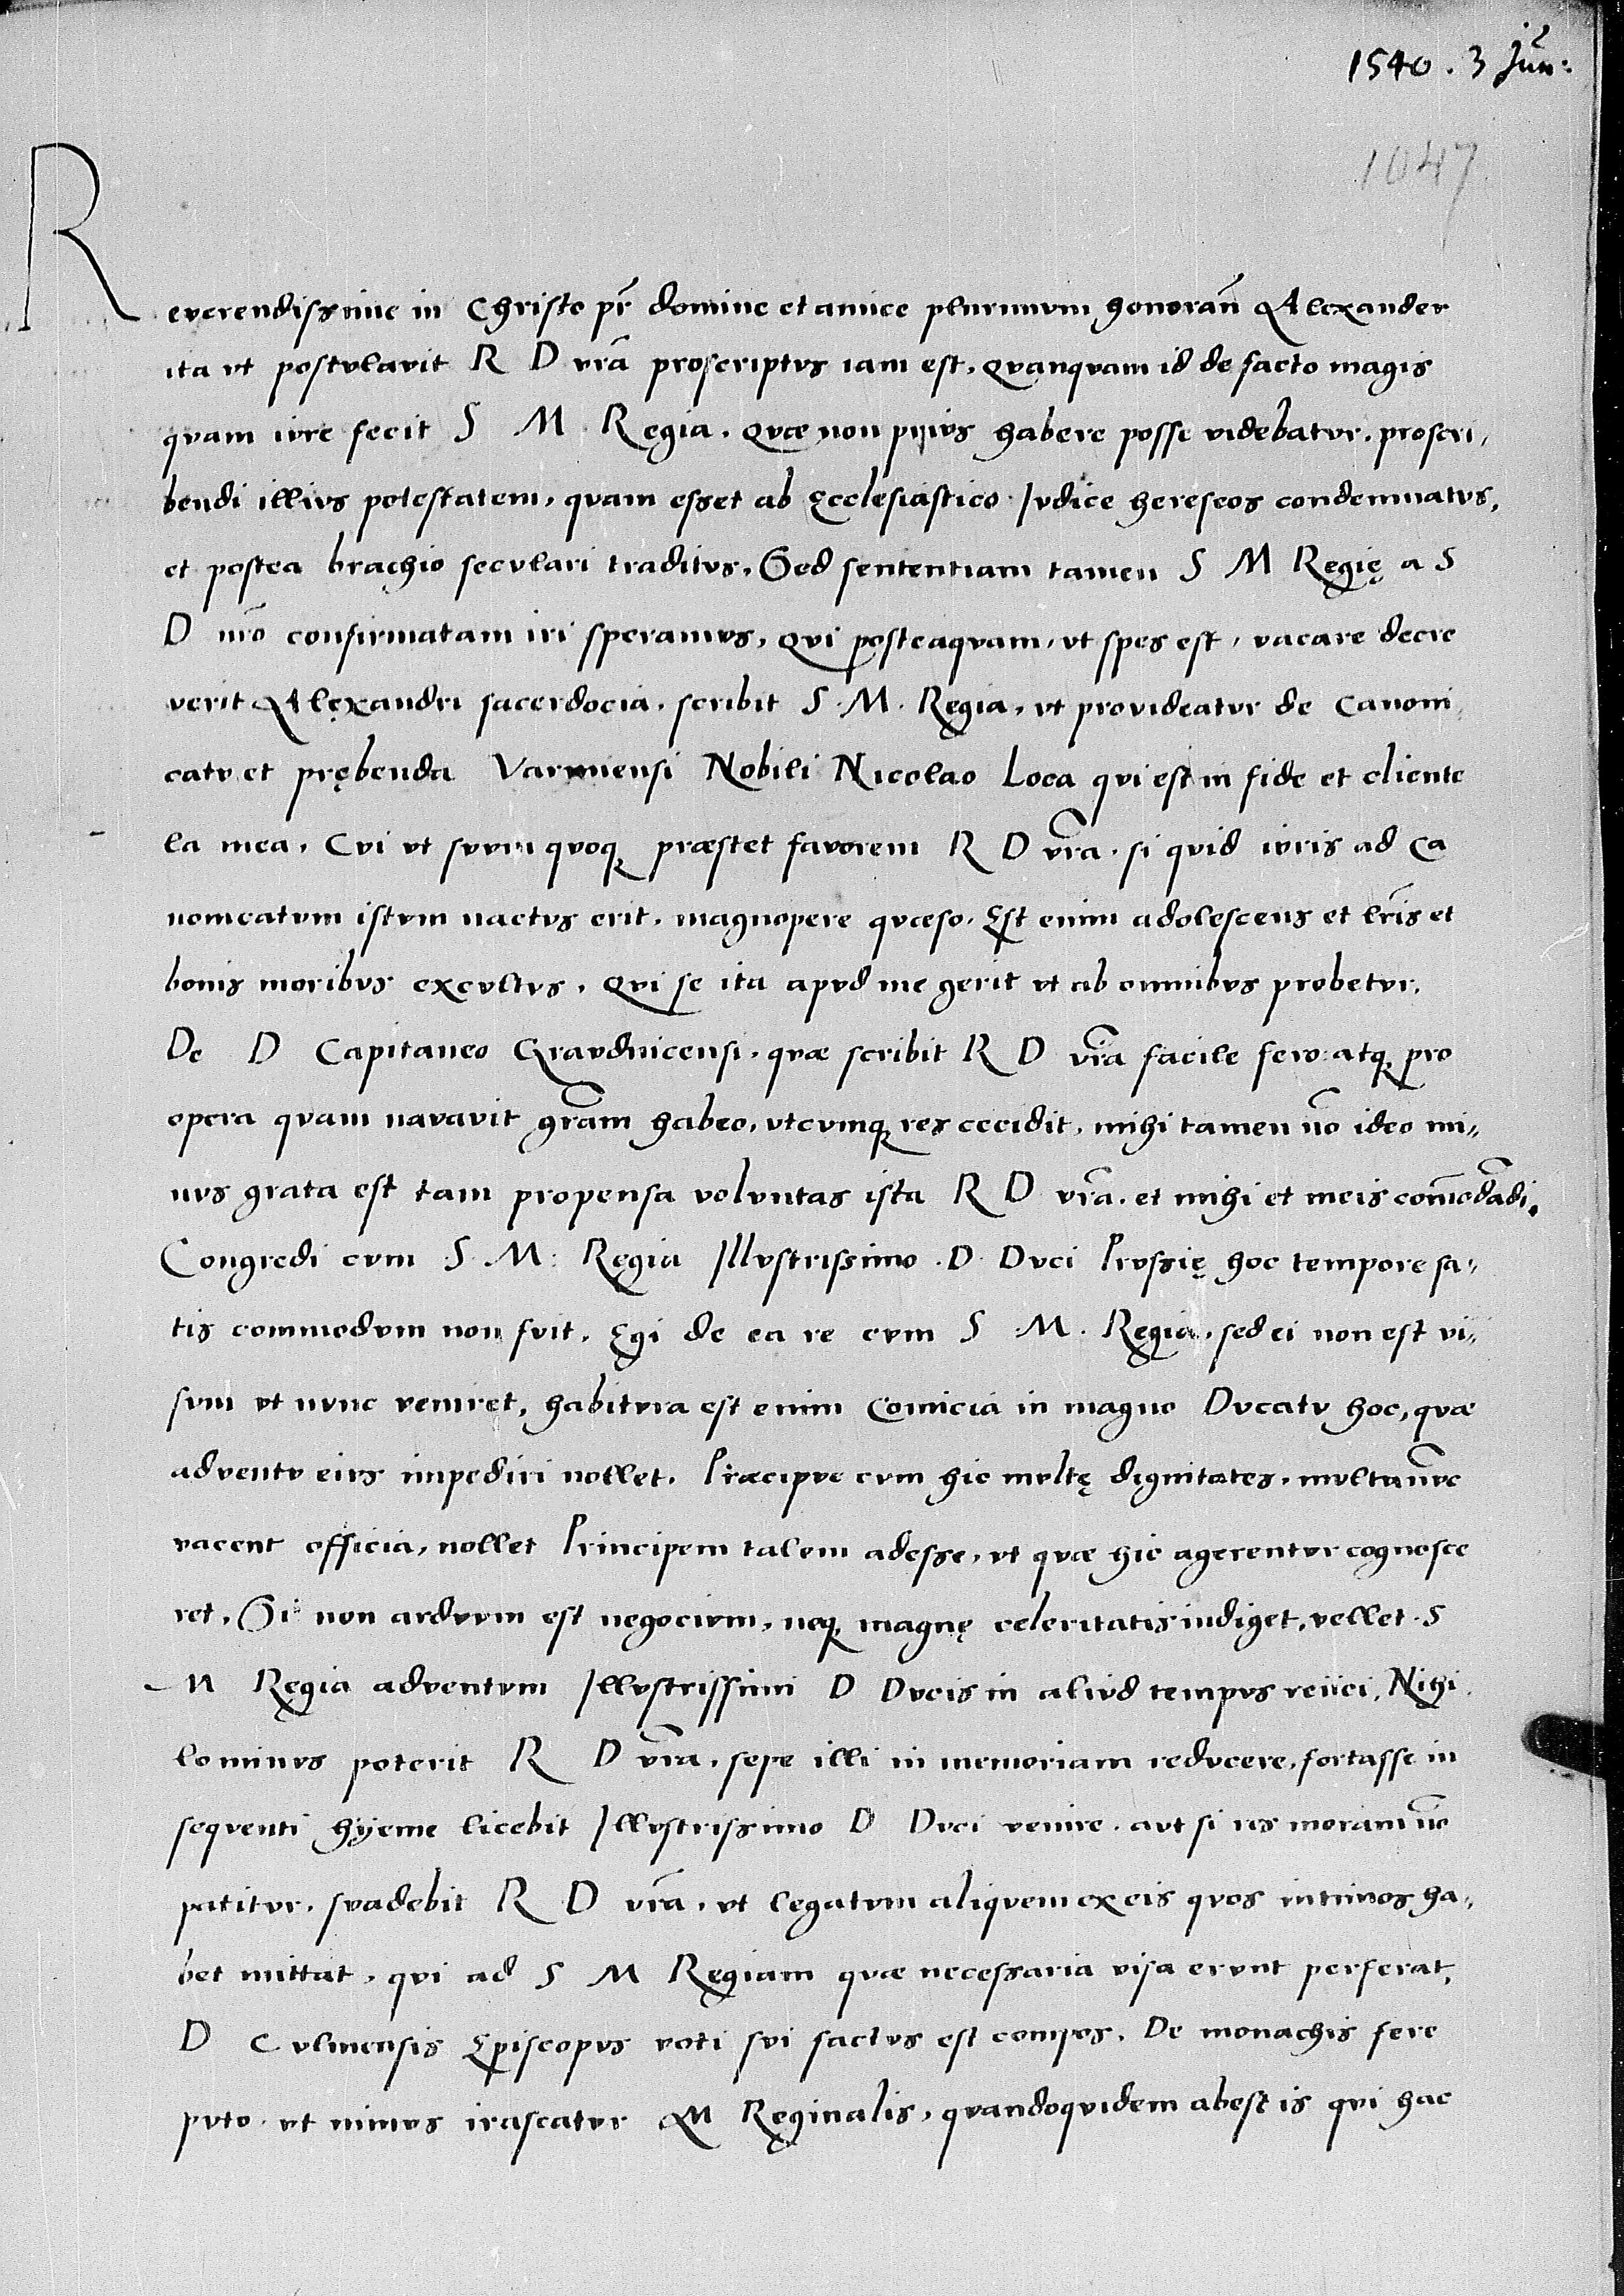 1540. 3 Jun:
1047
Reverendissime in Christo pr̃ domine et amice plurimvm honoran̄ Alexander
ita vt postvlavit R D vr̃a proscriptvs iam est, qvanqvam id de facto magis
qvam ivre fecit S M Regia. qvæ non privs habere posse videbatvr. proscri,
bendi illivs potestatem, qvam esset ab Ecclesiastico Ivdice hereseos condemnatvs,
et postea brachio secvlari traditvs, Sed sententiam tamen S M Regię a S
D nr̃o confirmatam iri speramvs, qvi posteaqvam, vt spes est, vacare decre
verit Alexandri sacerdocia, scribit S. M. Regia, vt provideatvr de Canoni,
catv et prębenda Varmiensi Nobili Nicolao Loca qvi est in fide et cliente
la mea, Cvi vt svvm qvoq̨ præstet favorem R D vr̃a. si qvid ivris ad Ca
nonicatvm istvm nactvs erit, magnopere qvæso. Est enim adolescens et lr̃is et
bonis moribvs excvltvs, qvi se ita apvd me gerit vt ab omnibvs probetvr,
De D Capitaneo Gravdnicensi, qvæ scribit R D vr̃a facile fero: atq̨ pro
opera qvam navavit gr̃am habeo, vtcvmq̨ res cecidit, mihi tamen nō ideo mi,,
nvs grata est tam propensa volvntas ista R D vr̃a. et mihi et meis com̄odādi,
Congredi cvm S. M: Regia Illvstrissimo. D. Dvci Prvssię hoc tempore sa,,
tis commodvm non fvit, Egi de ea re cvm S M. Regia, sed ei non est vi,,
svm vt nvnc veniret, habitvra est enim Comicia in magno Dvcatv hoc, qvæ
adventv eivs impediri nollet, Præcipve cvm hic mvltę dignitates, mvlta nv̄c
vacent officia, nollet Principem talem adesse, vt qvæ hic agerentvr cognosce
ret, Si non ardvvm est negocivm, neq̨ magnę celeritatis indiget, vellet. S
M Regia adventvm Illvstrissimi D Dvcis in alivd tempvs reiici, Nihi,
lominvs poterit R D vr̃a, sepe illi in memoriam redvcere, fortasse in
seqventi hyeme licebit Illvstrissimo D Dvci venire, avt si res moram nō
patitvr, svadebit R D vr̃a, vt legatvm aliqvem ex eis qvos intimos ha,,
bet mittat, qvi ad S M Regiam qvæ necessaria visa ervnt perferat,
D Cvlmensis Episcopvs voti svi factvs est compos, De monachis fere
pvto, vt minvs irascatvr M Reginalis, qvandoqvidem abest is qvi hac